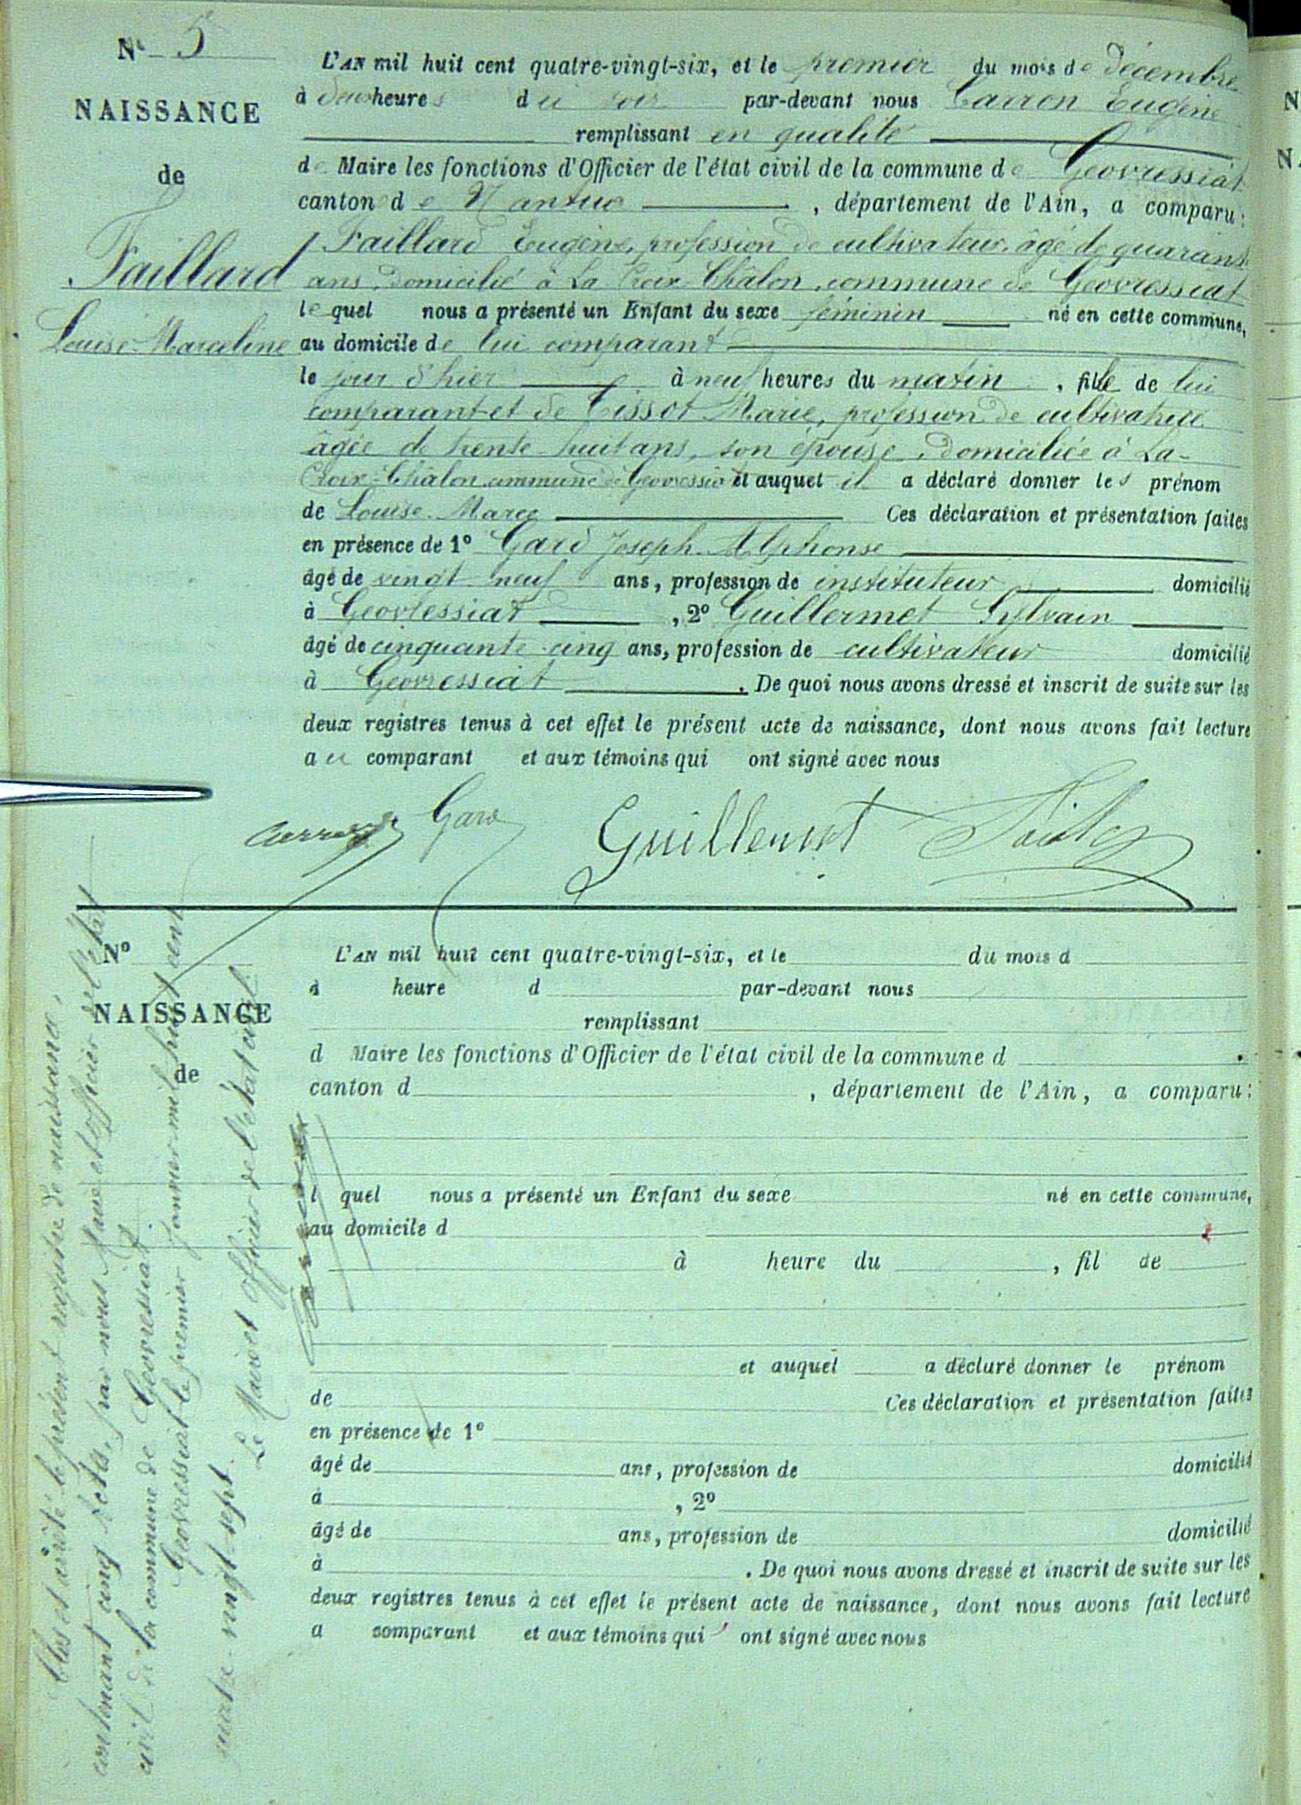 N° 5
NAISSANCE
de
Faillard
Louise-Marceline
L'AN mil huit cent quatre-vingt-six, et le premier du mois de décembre
à deux heures du soir par-devant nous Carron Eugène
remplissant en qualité
de Maire les fonctions d'Officier de l'état civil de la commune de Géovressiat
canton de Nantua, département de l'Ain, a comparu :
Faillard Eugène, profession de cultivateur, âgé de quarante
ans, domicilié à La Croix-Châlon, commune de Géovressiat
lequel nous a présenté un Enfant du sexe féminin né en cette commune,
au domicile de lui comparant
le jour d'hier à neuf heures du matin, fille de lui
comparant et de Tissot Marie, profession de cultivatrice
âgée de trente-huit ans, son épouse, domiciliée à La-
Croix-Châlon commune de Géovressiat et auquel il a déclaré donner les prénom
de Louise-Marce Ces déclaration et présentation faites
en présence de 1° Gard Joseph-Alphonse
âgé de vingt-neuf ans, profession de instituteur domicilié
à Géovressiat, 2° Guillermet Sylvain
âgé de cinquante-cinq ans, profession de cultivateur domicilié
à Géovressiat. De quoi nous avons dressé et inscrit de suite sur les
deux registres tenus à cet effet le présent acte de naissance, dont nous avons fait lecture
au comparant et aux témoins qui ont signé avec nous
Carron Gard Guillermet
N°
NAISSANCE
de
L'AN mil huit cent quatre-vingt-six, et le du mois d
à heure d par-devant nous
remplissant
d Maire les fonctions d'Officier de l'état civil de la commune d .
canton d , département de l'Ain, a comparu :
l quel nous a présenté un Enfant du sexe né en cette commune,
au domicile d
à heure du , fil de
et auquel a déclaré donner le prénom
de Ces déclaration et présentation faites
en présence de 1°
âgé de ans, profession de domicilié
à , 2°
âgé de ans, profession de domicilié
à . De quoi nous avons dressé et inscrit de suite sur les
deux registres tenus à cet effet le présent acte de naissance, dont nous avons fait lecture
a comparant et aux témoins qui ont signé avec nous
Clos et arrêté le présent registre de naissance,
contenant cinq actes, par nous Maire et officier de l'état
civil de la commune de Géovressiat.
Géovressiat le premier janvier mil huit cent
quatre-vingt-sept.
Le Maire et officier de l'état civil
Carron